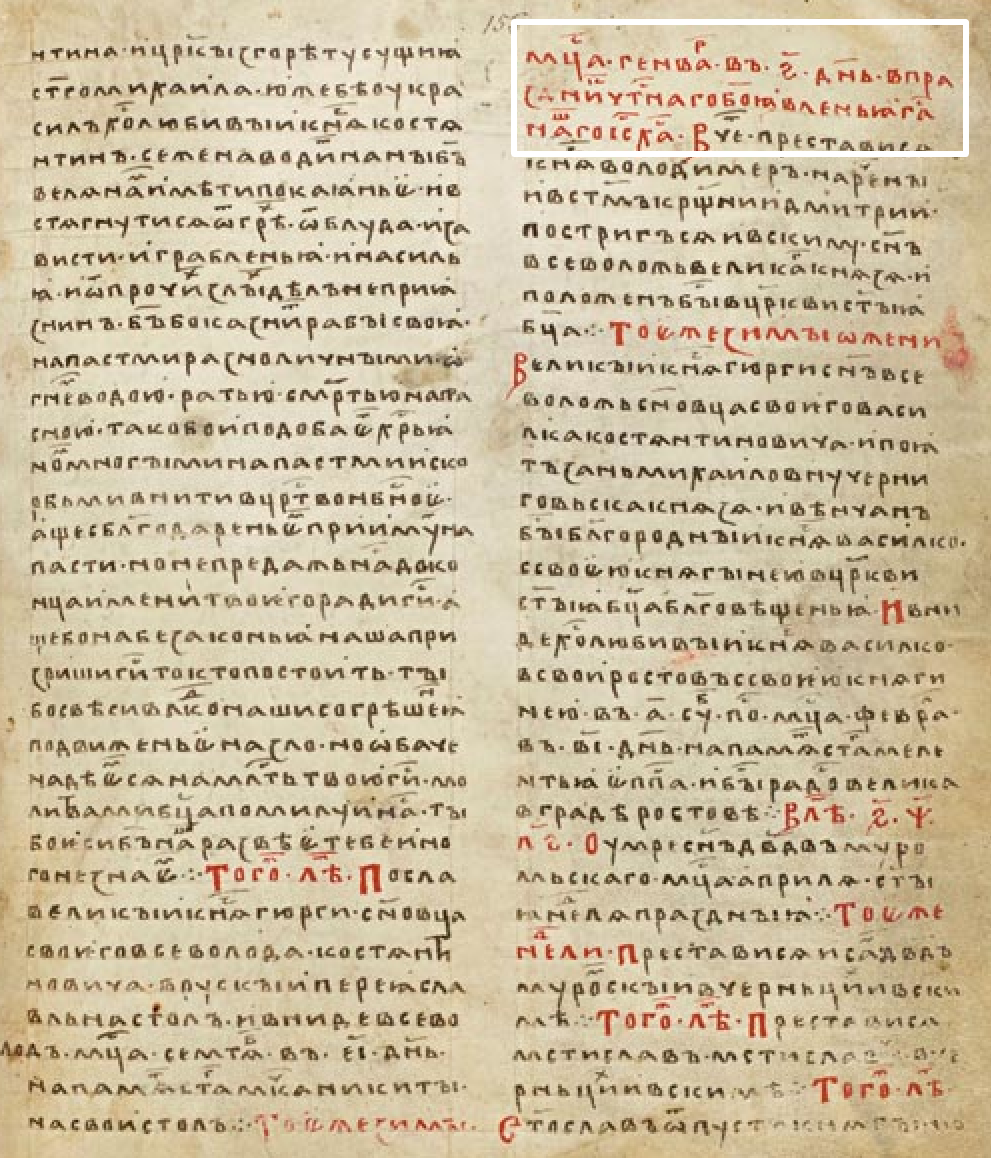 нтина· и цр҃кы сгорѣ ту сущиꙗ
ст҃го михаила· юже бѣ оукра
силъ х҃олюбивꙑи кнѧ҃ костѧ
нтинъ· семена води на нꙑ бъ҃
велѧ на҃ имѣти покаꙗньє· и въ
стѧгнутисѧ ѿ грѣ҃· ѿ блуда· и за
висти· и грабленьꙗ· и насиль
ꙗ· и ѿ прочи҃ злꙑ дѣлъ неприꙗ
знинъ· б҃ъ бо казни҃ рабꙑ своꙗ·
напастми разноличнꙑми· ѡ
гне҃ водою· ратью смр҃тью напа
сною· тако бо и подобає҃ хр҃ьꙗ
но҃ многꙑми напастми и ско
рбьми внити в цр҃тво нб҃ноє·
аще с благодареньє҃ приимуть на
пасти· но не предажь на҃ до ко
нца имени твоєго ради ги҃· а
ще бо на безаконьꙗ наша при
зриши ги҃ то кто постоить· тꙑ
бо свѣси влд҃ко наши согрѣшеньꙗ
подвиженьє на зло· но ѡбаче
надѣє҃мсѧ на мл҃ть твою ги҃· мо
литвами бц҃а помилуи на҃· тꙑ
бо єси бъ҃ нашь развѣ тебе ино
го не знає҃· Того҃· лѣ҃· Посла
великꙑи кнѧ҃ гюрги· сн҃овца
своѥго всеволода· костѧнт҃и
новича· в рускꙑи переꙗсла
вль на столъ· и вниде всево
лодъ· мц҃а· семтѧ҃· въ· е҃і· дн҃ь·
на памѧ҃ ст҃а мч҃ка никитꙑ·
на свои столъ· Тоєже зимꙑ·
мц҃а· генва҃р· въ· г҃· дн҃ь· в пра
здни҃ чт҃наго б҃оꙗвленьꙗ га҃
наше҃го іс҃а х҃а· В че· преставис
кнѧ҃ володимеръ· наренꙑ
и въ ст҃мь крщ҃нии дмитрии·
постригъсѧ и в скиму· сн҃ъ
всеволожь великака кнѧзѧ· и
положенъ бꙑ҃ в цр҃кви ст҃ꙑꙗ
бц҃а· Тоєже зимꙑ ѡжени
великꙑи кнѧ҃ гюрги сн҃ъ все
воложь сн҃овца своѥго васи
лка костѧнтиновича· и поꙗ
тъ за нь михаиловну черни
говьскака кнѧзѧ· и вѣнчанъ
бꙑ҃ благороднꙑи кнѧ҃ василко·
с своєю кнѧгꙑнею в цр҃кви
ст҃ꙑꙗ бц҃а благовѣщеньꙗ· И вни
де х҃олюбивꙑи кнѧ҃ василко·
в свои ростовъ с своєю кнѧги
нею· въ· а҃· су҃б· по· мц҃а· февра҃·
въ· в҃і· дн҃ь· на памѧ҃ ст҃а меле
нтьꙗ єпп҃а· и бꙑ҃ радо҃ велика
в градѣ ростовѣ· В лѣ҃· ҂s҃· ѱ҃
л҃г· Оумре сн҃ъ дв҃двъ муро
мьскаго· мц҃а априлѧ· ст҃ꙑ
ꙗ нед҃лѧ празднꙑꙗ· Тоєже
нед҃ли· Преставис и сам дв҃дъ
муроскꙑи в черньци и в ски
мѣ· Того҃· лѣ҃· Преставис
мстиславъ· мстиславич в че
рньци҃ и в скимѣ· Того҃· лѣ҃
Ст҃ославъ ѿпусти кнѧгꙑню